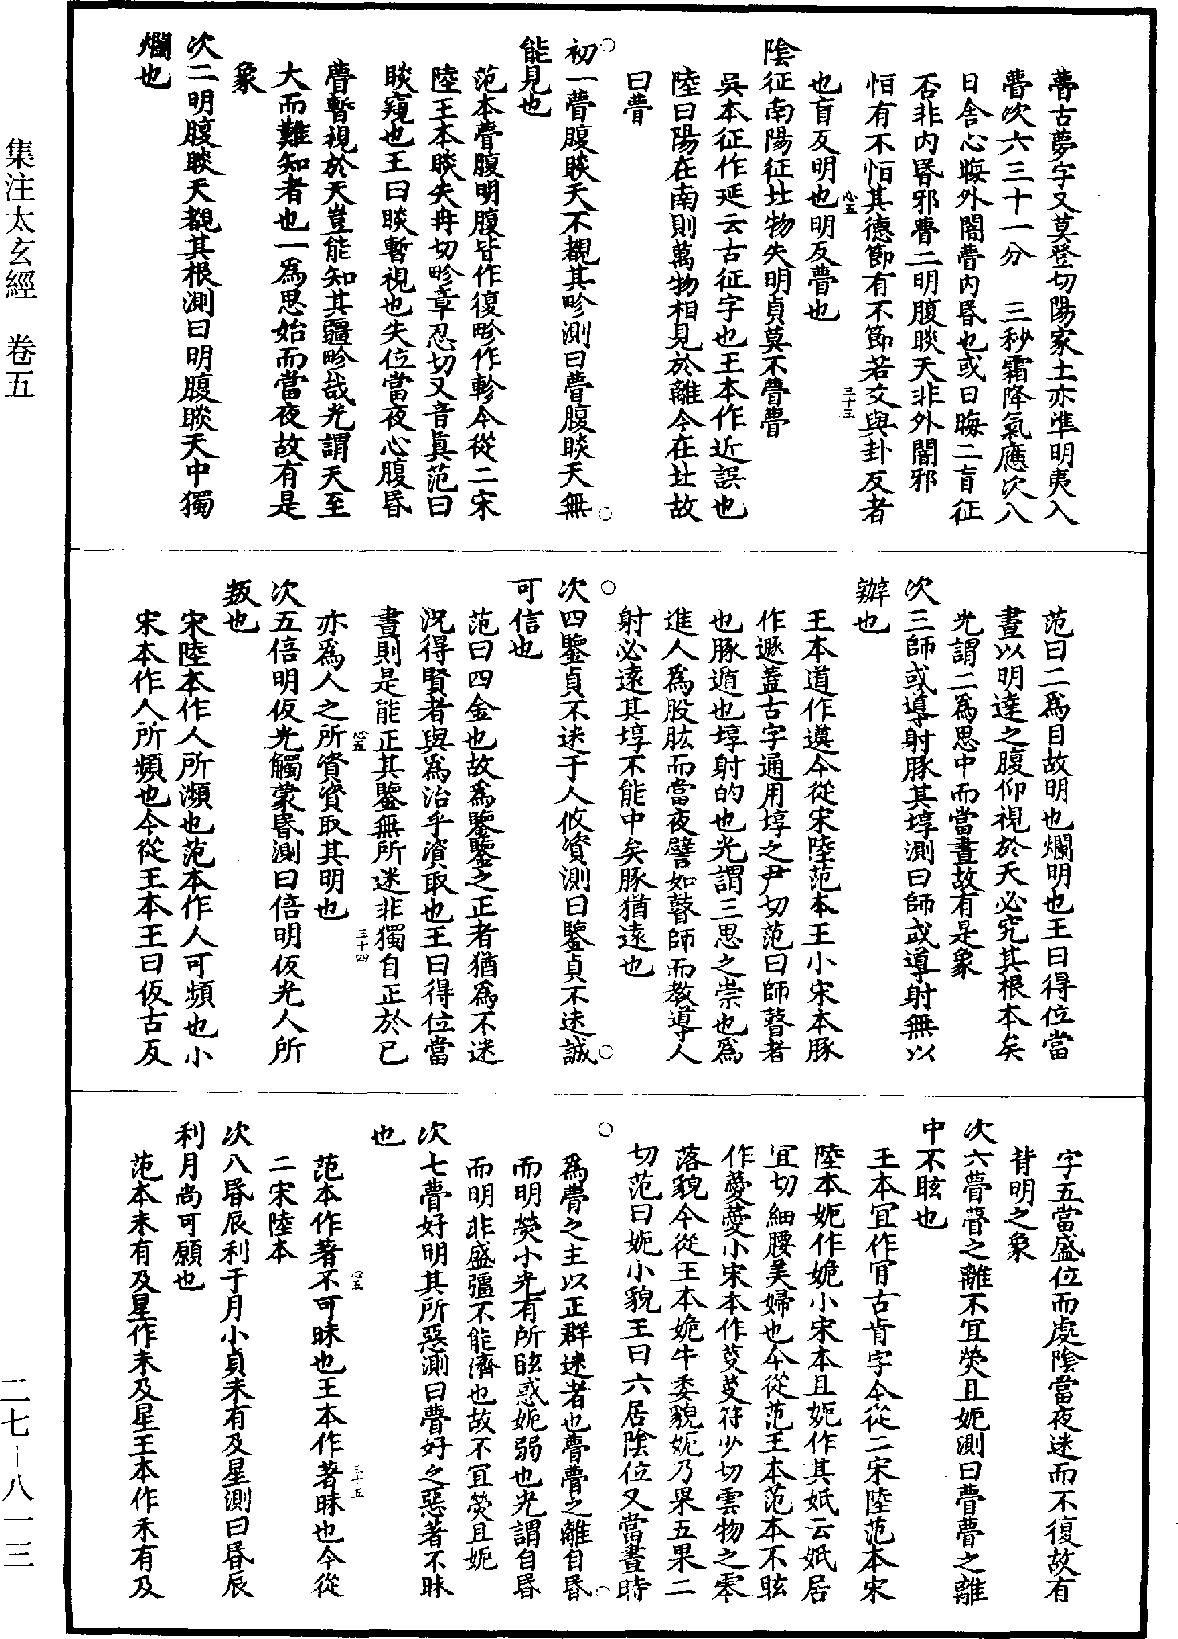 瞢古夢字又莫登切陽家土亦準明夷入
瞢次六三十一分　三秒霜降氣應次八
日舍心晦外闇瞢內昬也或日晦二盲征
否非內昬邪瞢二明腹睒天非外闇邪
恒有不恒其德節有不節若爻與卦反者
心五
三十三
也盲反明也明反瞢也
陰征南陽征北物失明貞莫不瞢瞢
吳本征作延云古征字也王本作近誤也
陸曰陽在南則萬物相見於離今在北故
曰瞢
初一瞢腹睒天不覩其畛測曰瞢腹睒天無
能見也
范本瞢腹明腹皆作復畛作軫今從二宋
陸王本睒失冉切畛章忍切又音真范曰
睒窺也王曰睒暫視也失位當夜心腹昬
瞢暫視於天豈能知其疆畛哉光謂天至
大而難知者也一為思始而當夜故有是
象
次二明腹睒天覩其根測曰明腹睒天中獨
爛也
范曰二為目故明也爛明也王曰得位當
晝以明達之腹仰視於天必究其根本矣
光謂二為思中而當晝故有是象
次三師或導射豚其埻測曰師或導射無以
辦也
王本道作遵今從宋陸范本王小宋本豚
作遯蓋古字通用埻之尹切范曰師瞽者
也豚遁也埻射的也光謂三思之崇也為
進人為股肱而當夜譬如瞽師而教導人
射必遠其埻不能中矣豚猶遠也
次四鑒貞不迷于人攸資測曰鑒貞不迷誠
可信也
范曰四金也故為鑒鑒之正者猶為不迷
況得賢者與為治乎資取也王曰得位當
晝則是能正其鑒無所迷非獨自正於已
心五
三十四
亦為人之所資資取其明也
次五倍明仮光觸蒙昬測曰倍明仮光人所
叛也
宋陸本作人所瀕也范本作人可頻也小
宋本作人所頻也今從王本王曰仮古反
字五當盛位而處陰當夜迷而不復故有
背明之象
次六瞢瞢之離不冝熒且妮測曰瞢瞢之離
中不眩也
王本冝作肎古肯字今從二宋陸范本宋
陸本妮作姽小宋本且妮作其娬云娬居
冝切細腰美婦也今從范王本范本不眩
作薆薆小宋本作芆芆符少切雲物之零
落貌今從王本姽牛委貌妮乃果五果二
切范曰妮小貌王曰六居陰位又當晝時
為瞢之主以正群迷者也瞢瞢之離自昬
而明熒小光有所眩惑妮弱也光謂自昬
而明非盛彊不能濟也故不冝熒且妮
次七瞢好明其所惡測曰瞢好之惡著不昧
也
范本作著不可昧也王本作著昧也今從
心五
三十五
二宋陸本
次八昬辰利于月小貞未有及星測曰昬辰
利月尚可願也
范本未有及星作未及星王本作禾有及
集注太玄經　卷五
二七－八一三